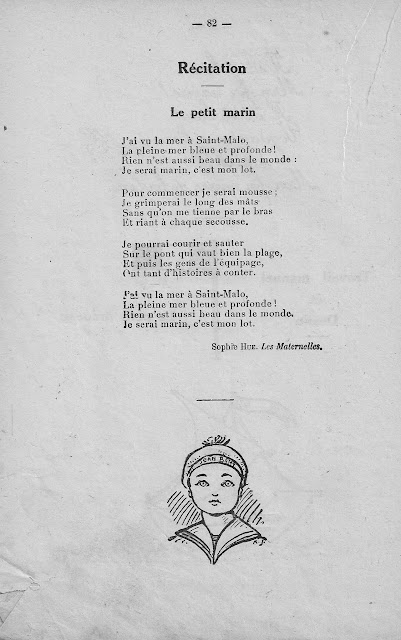 — 82 —
Récitation
Le petit marin
J'ai vu la mer à Saint-Malo,
La pleine mer bleue et profonde!
Rien n'est aussi beau dans le monde :
Je serai marin, c'est mon lot.
Pour commencer je serai mousse ;
Je grimperai le long des mâts
Sans qu'on me tienne par le bras
Et riant à chaque secousse.
Je pourrai courir et sauter
Sur le pont qui vaut bien la plage,
Et puis les gens de l'équipage,
Ont tant d'histoires à conter.
J'ai vu la mer à Saint-Malo,
La pleine mer bleue et profonde !
Rien n'est aussi beau dans le monde.
Je serai marin, c'est mon lot.
Sophie HUE. Les Maternelles.
JEAN BART